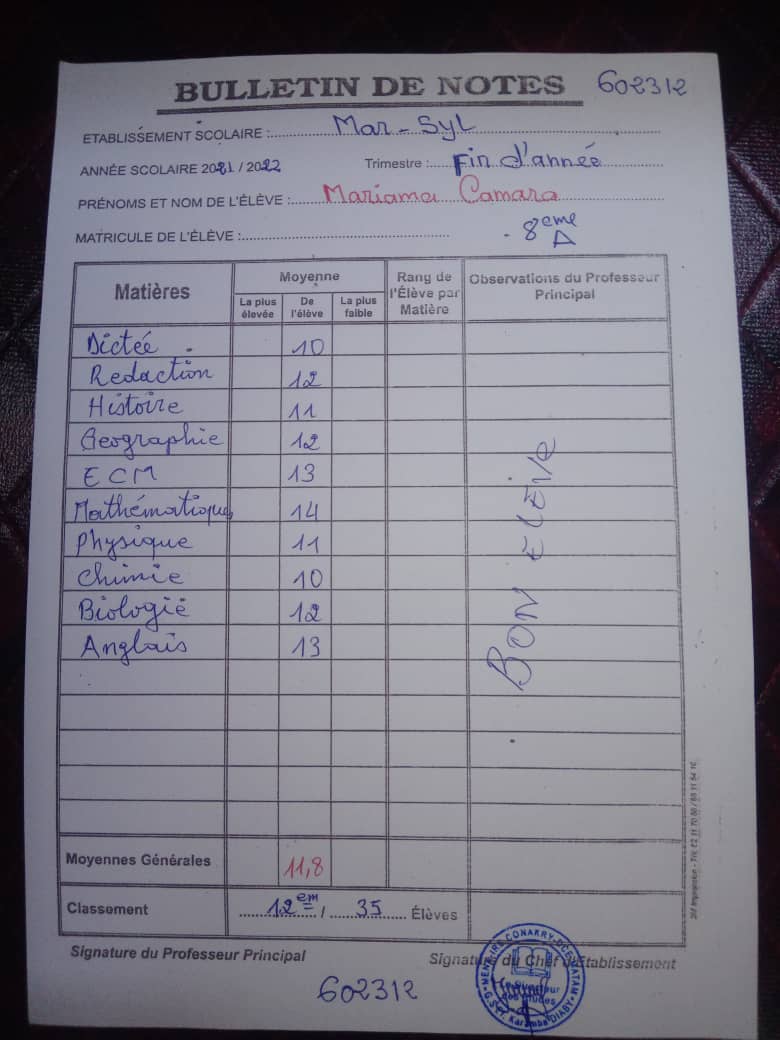 BULLETIN DE NOTES 602312
ETABLISSEMENT SCOLAIRE : Mar - Syl
ANNÉE SCOLAIRE 2021 / 2022 Trimestre : Fin d'année
PRÉNOMS ET NOM DE L'ÉLÈVE : Mariama Camara
MATRICULE DE L'ÉLÈVE : 8eme A
Matières Moyenne Rang de l'Élève par Matière Observations du Professeur Principal
La plus élevée De l'élève La plus faible
Dictée 10
Redaction 12
Histoire 11
Geographie 12
ECM 13
Mathématiques 14
Physique 11
Chimie 10
Biologie 12
Anglais 13
BON ELÈVE
Moyennes Générales 11,8
Classement 12em / 35 Élèves
Signature du Professeur Principal Signature du Chef d'Etablissement
602312
Le Directeur
des Etudes